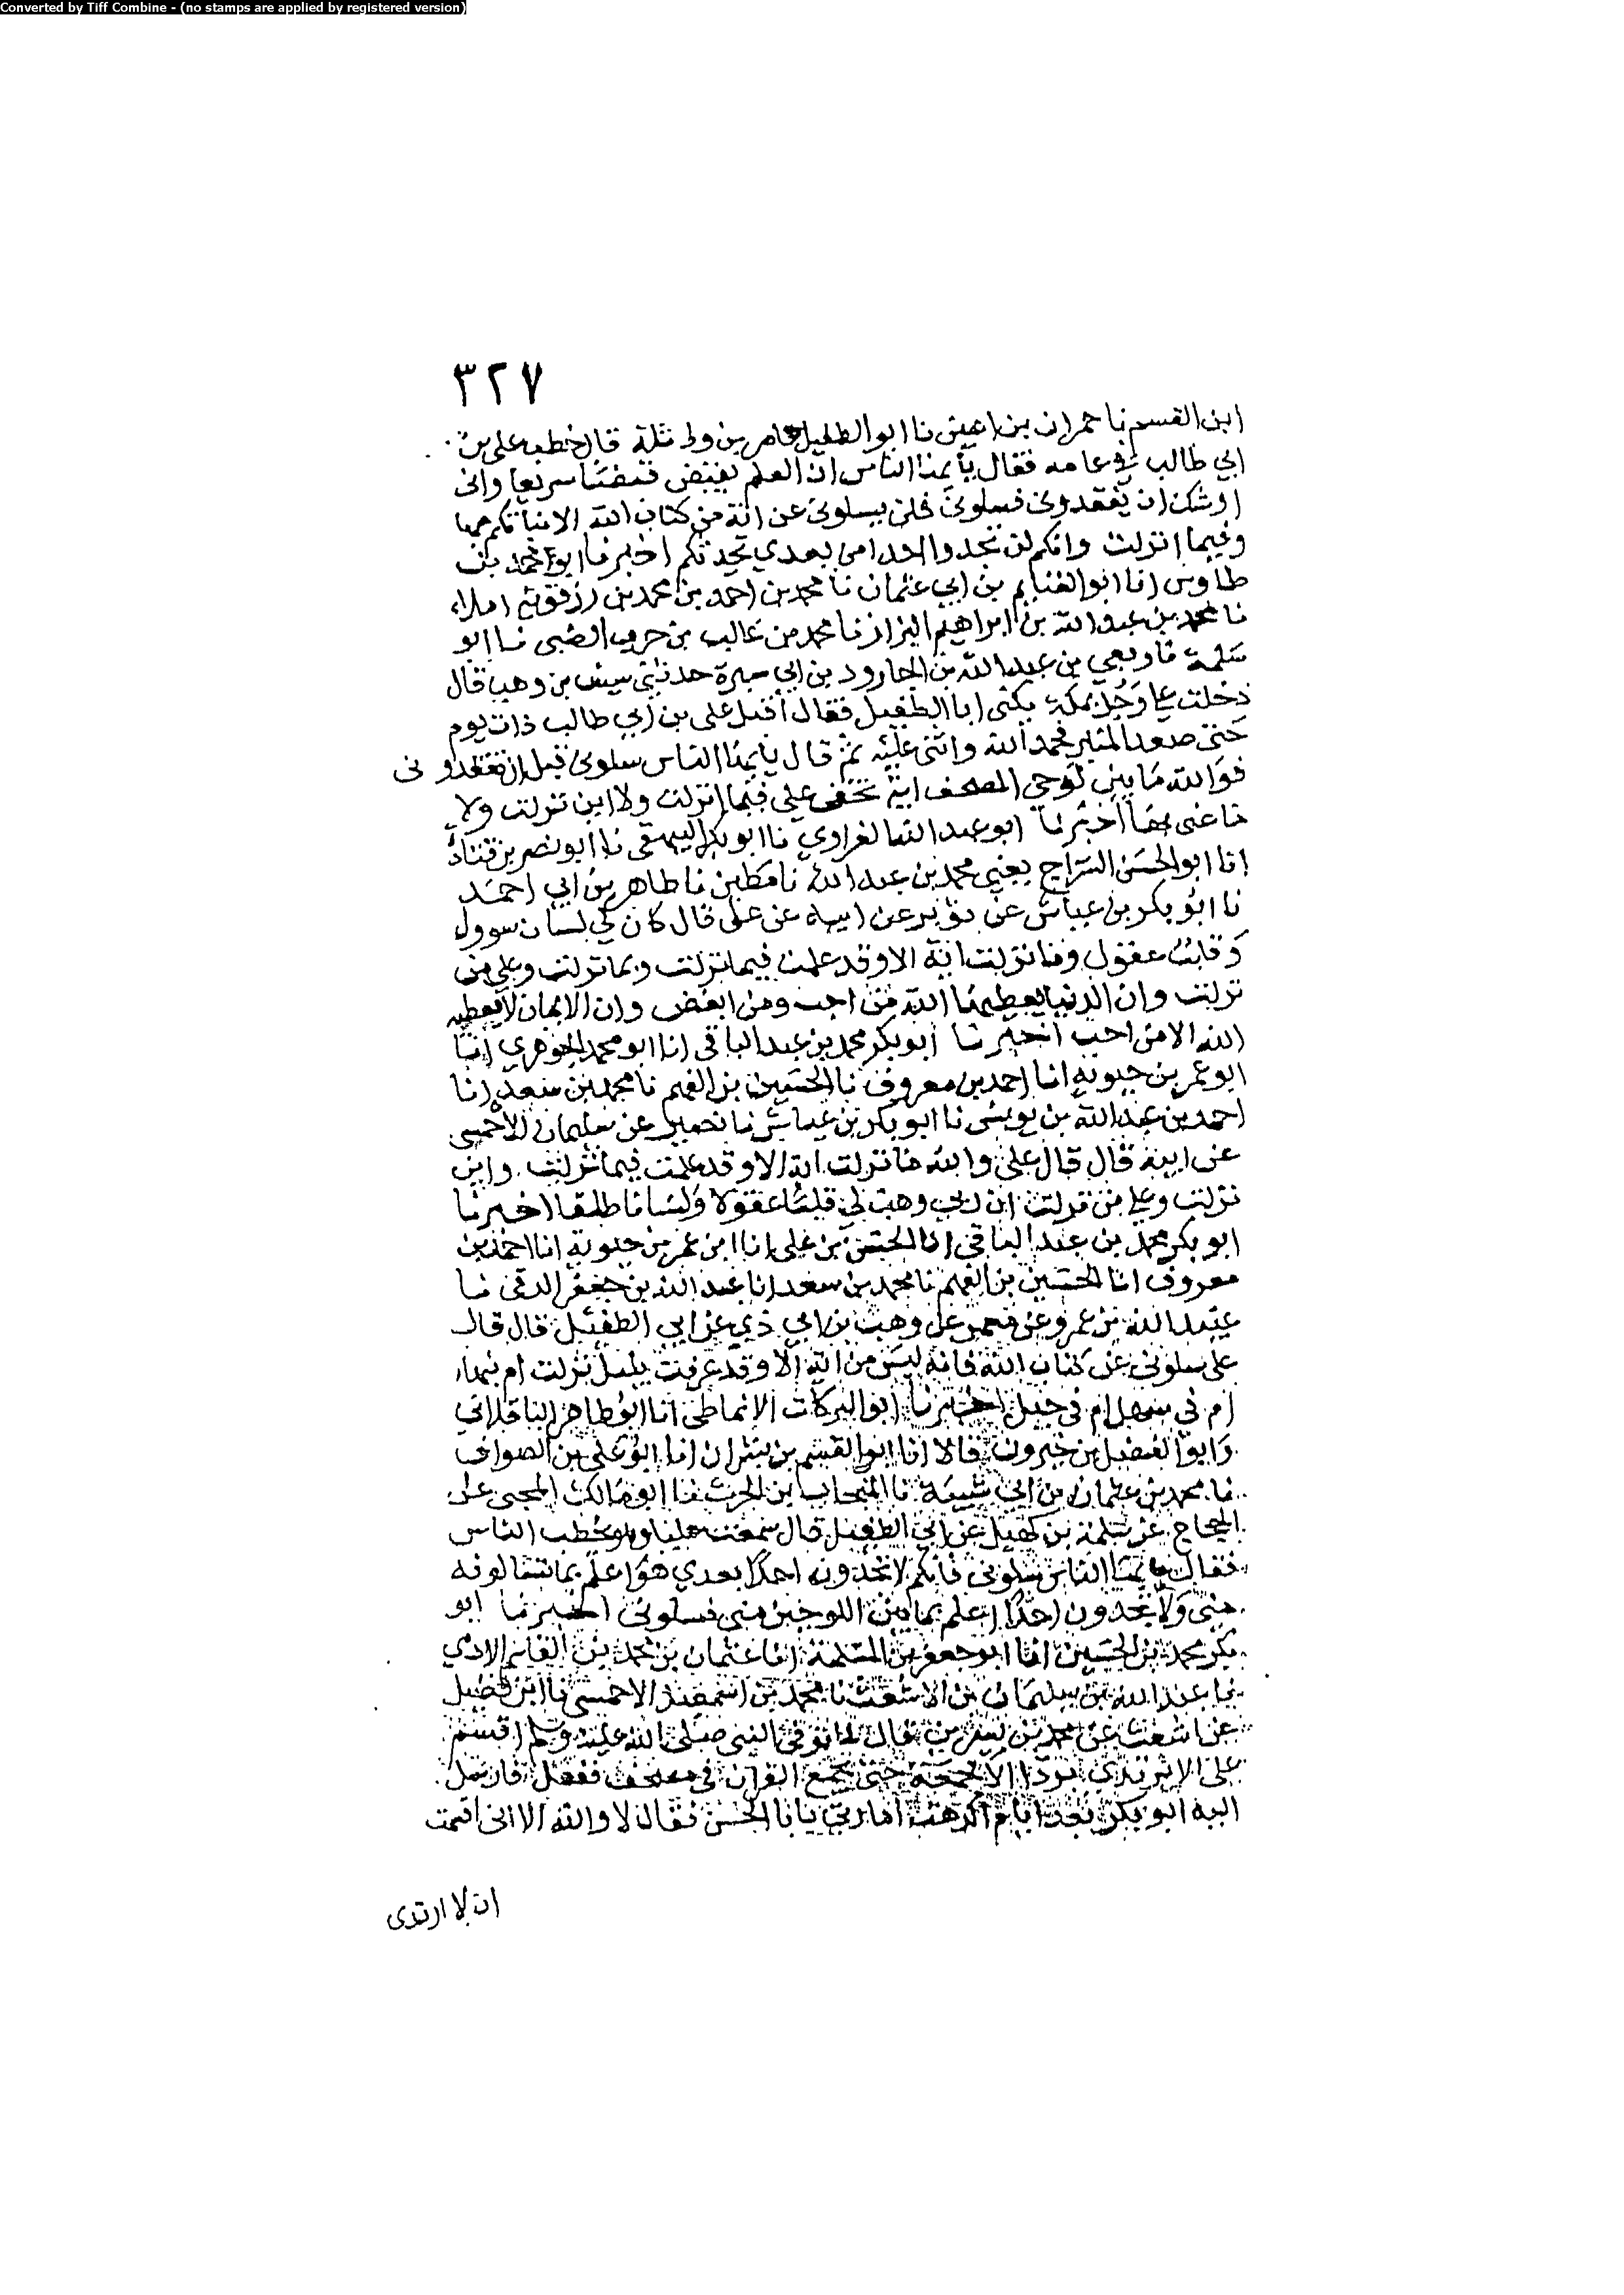 Converted by Tiff Combine - (no stamps are applied by registered version)
٣٢٧
ابن القسم نا حمران بن اعين نا ابو الطفيل عامر بن واثلة قال خطب علي بن
ابي طالب في عامه فقال يأيها الناس ان العلم يقبض قبضا سريعا واني
اوشك ان تفقدوني فسلوني فلن تسلوني عن اية من كتاب الله الا نبأتكم بها
وفيما انزلت وانكم لن تجدوا احدا من بعدي يحدثكم اخبرنا ابو محمد بن
طاوس انا ابو الغنايم بن ابي عثمان نا محمد بن احمد بن محمد بن رزقويه املاء
نا محمد بن عبد الله بن ابراهيم البزاز نا محمد بن غالب بن حرب الضبي نا ابو
سلمة نا ربعي بن عبد الله بن الجارود بن ابي سبرة حدثني سيف بن وهب قال
دخلت على رجل بمكة يكنى ابا الطفيل فقال اقبل علي بن ابي طالب ذات يوم
حتى صعد المنبر فحمد الله واثنى عليه ثم قال يأيها الناس سلوني قبل ان تفقدوني
فوالله ما بين لوحي المصحف اية تخفى علي فيما انزلت ولا اين نزلت ولا
ما عنى بها اخبرنا ابو عبد الله الفراوي نا ابو بكر البيهقي نا ابو نصر بن قتادة
انا ابو الحسن السراج يعني محمد بن عبد الله نا مطين نا طاهر بن ابي احمد
نا ابو بكر بن عياش عن ثوير عن ابيه عن علي قال كان لي لسان سوول
وقلب عقول وما نزلت اية الا وقد علمت فيما نزلت وبما نزلت وعلى من
نزلت وان الدنيا يعطيها الله من احب ومن ابغض وان الايمان لا يعطيه
الله الا من احب اخبرنا ابو بكر محمد بن عبد الباقي انا ابو محمد الجوهري انبا
ابو عمر بن حيويه انا احمد بن معروف نا الحسين بن الفهم نا محمد بن سعد انا
احمد بن عبد الله بن يونس نا ابو بكر بن عياش نا نصير عن سليمان الاحمسي
عن ابيه قال قال علي والله ما نزلت اية الا وقد علمت فيما نزلت واين
نزلت وعلى من نزلت ان ربي وهب لي قلبا عقولا ولسانا طلقا اخبرنا
ابو بكر محمد بن عبد الباقي انا الحسن بن علي انا ابن عمر بن حيويه انا احمد بن
معروف انا الحسين بن الفهم نا محمد بن سعد انا عبد الله بن جعفر الرقي نا
عبيد الله بن عمرو عن معمر عن وهب بن ابي ذي عن ابي الطفيل قال قال
علي سلوني عن كتاب الله فانه ليس من اية الا وقد عرفت بليل نزلت ام بنهار
ام في سهل ام في جبل اخبرنا ابو البركات الانماطي انا ابو طاهر الباقلاني
وابو الفضل بن خيرون قالا انا ابو القسم بن بشران انا ابو علي بن الصواف
نا محمد بن عثمان بن ابي شيبة نا المنجاب بن الحرث نا ابو مالك الجنبي عن
الحجاج عن سلمة بن كهيل عن ابي الطفيل قال سمعت عليا وهو يخطب الناس
فقال يأيها الناس سلوني فانكم لا تجدون احدا بعدي هو اعلم بما تسالونه
مني ولا تجدون احدا اعلم بما بين اللوحين مني فسلوني اخبرنا ابو
بكر محمد بن الحسين انا ابو جعفر بن المسلمة انا عثمان بن محمد بن القاسم الادمي
نا عبد الله بن سليمان بن الاشعث نا محمد بن اسمعيل الاحمسي نا ابن فضيل
عن اشعث عن محمد بن سيرين قال لما توفي النبي صلى الله عليه وسلم اقسم
علي الا يرتدي بردا الا لجمعة حتى يجمع القران في مصحف ففعل فارسل
اليه ابو بكر بعد ايام اكرهت امارتي يابا الحسن فقال لا والله الا اني اقسمت
ان لا ارتدى